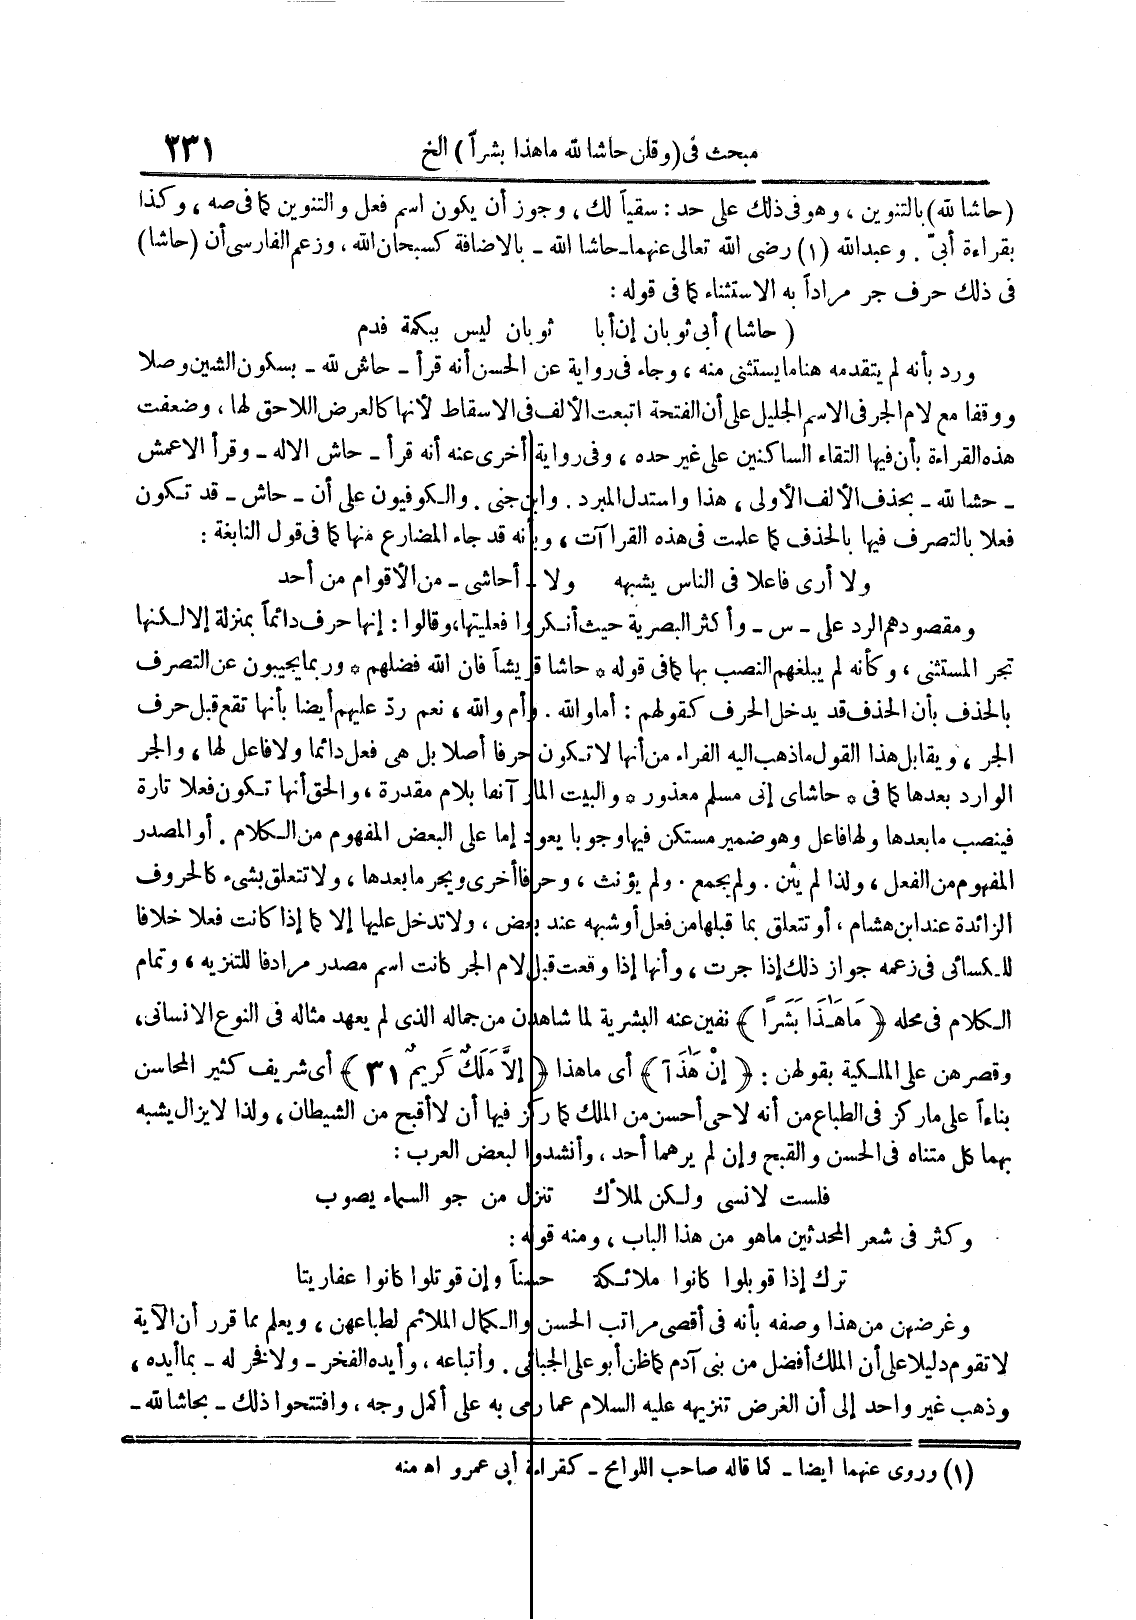 مبحث فى (وقلن حاشا لله ماهذا بشراً) الخ ٢٣١
(حاشا لله) بالتنوين ، وهو فى ذلك على حد : سقياً لك ، وجوز أن يكون اسم فعل والتنوين كما فى صه ، وكذا
بقراءة أبىّ . وعبدالله (١) رضى الله تعالى عنهما ـ حاشا الله ـ بالاضافة كسبحان الله ، وزعم الفارسى أن (حاشا)
فى ذلك حرف جر مراداً به الاستثناء كما فى قوله :
(حاشا) أبى ثوبان إن أبا ثوبان ليس ببكمة فدم
ورد بأنه لم يتقدمه هنا ما يستثنى منه ، وجاء فى رواية عن الحسن أنه قرأ ـ حاش لله ـ بسكون الشين وصلا
ووقفا مع لام الجر فى الاسم الجليل على أن الفتحة اتبعت الألف فى الاسقاط لأنها كالعرض اللاحق لها ، وضعفت
هذه القراءة بأن فيها التقاء الساكنين على غير حده ، وفى رواية أخرى عنه أنه قرأ ـ حاش الاله ـ وقرأ الاعمش
ـ حشا لله ـ بحذف الألف الأولى ، هذا واستدل المبرد . وابن جنى . والكوفيون على أن ـ حاش ـ قد تكون
فعلا بالتصرف فيها بالحذف كما علمت فى هذه القراآت ، وبأنه قد جاء المضارع منها كما فى قول النابغة :
ولا أرى فاعلا فى الناس يشبهه ولا ـ أحاشى ـ من الأقوام من أحد
ومقصودهم الرد على ـ س ـ وأكثر البصرية حيث أنكروا فعليتها ، وقالوا : إنها حرف دائماً بمنزلة إلا لكنها
تجر المستثنى ، وكأنه لم يبلغهم النصب بها كما فى قوله * حاشا قريشاً فان الله فضلهم * وربما يجيبون عن التصرف
بالحذف بأن الحذف قد يدخل الحرف كقولهم : أما والله . وأم والله ، نعم ردّ عليهم أيضا بأنها تقع قبل حرف
الجر ، ويقابل هذا القول ما ذهب اليه الفراء من أنها لا تكون حرفا أصلا بل هى فعل دائما ولا فاعل لها ، والجر
الوارد بعدها كما فى * حاشاى إنى مسلم معذور * والبيت المار آنفا بلام مقدرة ، والحق أنها تكون فعلا تارة
فينصب ما بعدها ولها فاعل وهو ضمير مستكن فيها وجوبا يعود إما على البعض المفهوم من الكلام . أو المصدر
المفهوم من الفعل ، ولذا لم يثن . ولم يجمع . ولم يؤنث ، وحرفا أخرى ويجر ما بعدها ، ولا تتعلق بشىء كالحروف
الزائدة عند ابن هشام ، أو تتعلق بما قبلها من فعل أو شبهه عند بعض ، ولا تدخل عليها إلا كما إذا كانت فعلا خلافا
للكسائى فى زعمه جواز ذلك إذا جرت ، وأنها إذا وقعت قبل لام الجر كانت اسم مصدر مرادفا للتنزيه ، وتمام
الكلام فى محله ﴿ مَا هَـٰذَا بَشَرًا ﴾ نفين عنه البشرية لما شاهدن من جماله الذى لم يعهد مثاله فى النوع الانسانى ،
وقصرهن على الملكية بقولهن : ﴿ إنْ هَـٰذَآ ﴾ أى ما هذا ﴿ إلاَّ مَلَكٌ كَرِيمٌ ٣١ ﴾ أى شريف كثير المحاسن
بناءاً على ما ركز فى الطباع من أنه لا حى أحسن من الملك كما ركز فيها أن لا أقبح من الشيطان ، ولذا لا يزال يشبه
بهما كل متناه فى الحسن والقبح وإن لم يرهما أحد ، وأنشدوا لبعض العرب :
فلست لانسى ولكن لملأك تنزل من جو السماء يصوب
وكثر فى شعر المحدثين ما هو من هذا الباب ، ومنه قوله :
ترك إذا قوبلوا كانوا ملائكة حسناً وإن قوتلوا كانوا عفاريتا
وغرضهن من هذا وصفه بأنه فى أقصى مراتب الحسن والكمال الملائم لطباعهن ، ويعلم مما قرر أن الآية
لا تقوم دليلا على أن الملك أفضل من بنى آدم كما ظن أبو على الجبائى . وأتباعه ، وأيده الفخر ـ ولا فخر له ـ بما أيده ،
وذهب غير واحد إلى أن الغرض تنزيهه عليه السلام عما رمى به على أكمل وجه ، وافتتحوا ذلك ـ بحاشا لله ـ
(١) وروى عنهما ايضا ـ كما قاله صاحب اللوامح ـ كقراءة أبى عمرو اه منه